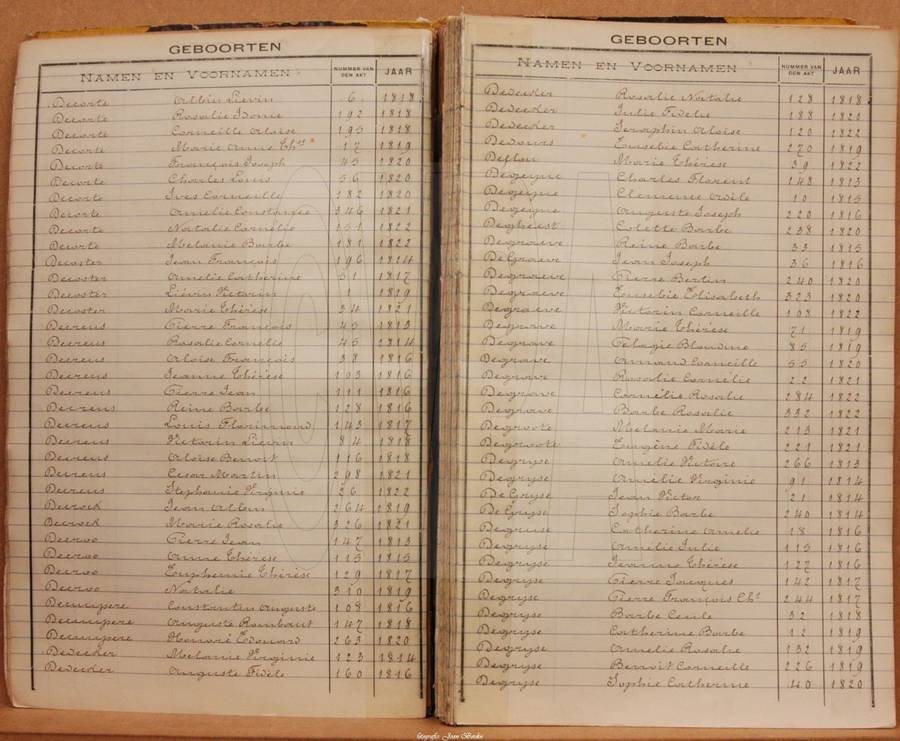 GEBOORTEN
NAMEN EN VOORNAMEN NUMMER VAN DEN AKT JAAR
Decorte Albin Liévin 6 1818
Decorte Rosalie Idonie 192 1818
Decorte Corneille Aloïse 195 1818
Decorte Marie Anne Thse 17 1819
Decorte François Joseph 45 1820
Decorte Charles Louis 56 1820
Decorte Ives Corneille 182 1820
Decorte Amelie Constance 146 1821
Decorte Natalie Cornelie 151 1822
Decorte Melanie Barbe 181 1822
Decoster Jean François 196 1814
Decoster Amelie Catherine 51 1817
Decoster Liévin Victorin 1 1819
Decoster Marie Thérèse 34 1821
Decreus Pierre François 45 1813
Decreus Rosalie Cornelie 45 1814
Decreus Aloïse François 38 1816
Decreus Jeanne Thérèse 103 1816
Decreus Pierre Jean 111 1816
Decreus Reine Barbe 128 1816
Decreus Louis Florimond 143 1817
Decreus Victorin Liévin 84 1818
Decreus Aloïse Benoit 116 1818
Decreus Cesar Martin 298 1821
Decreus Stephanie Virginie 26 1822
Decrock Jean Albin 264 1819
Decrock Marie Rosalie 326 1821
Decroo Pierre Jean 147 1813
Decroo Anne Thérèse 115 1815
Decroo Euphemie Thérèse 129 1817
Decroo Natalie 310 1819
Decuupere Constantin Auguste 108 1816
Decuupere Auguste Rombaut 147 1818
Decuupere Honoré Edouard 263 1820
Dedecker Melanie Virginie 123 1814
Dedecker Auguste Fidèle 160 1816
GEBOORTEN
NAMEN EN VOORNAMEN NUMMER VAN DEN AKT JAAR
Dedecker Rosalie Natalie 128 1818
Dedecker Julie Fidelie 188 1821
Dedecker Seraphin Aloïse 120 1822
Dedours Eusebie Catherine 270 1819
Deflou Marie Thérèse 39 1822
Degeijne Charles Florent 148 1813
Degeijne Clemence Adèle 10 1815
Degeijne Auguste Joseph 220 1816
Degheest Colette Barbe 238 1820
Degraeuve Reine Barbe 33 1815
DeGraeve Jean Joseph 36 1816
Degraeve Pierre Bertin 240 1820
Degraeve Eusebie Elisabeth 323 1820
Degraeve Victorin Corneille 108 1822
Degrave Marie Thérèse 71 1819
Degrave Pelagie Blandine 85 1819
Degrave Armand Corneille 55 1820
Degrave Rosalie Cornélie 22 1821
Degrave Cornélie Rosalie 284 1822
Degrave Barbe Rosalie 332 1822
Degroote Melanie Marie 213 1821
Degroote Eugène Fidèle 221 1821
Degryse Amelie Victoire 266 1813
Degryse Amélie Virginie 91 1814
DeGryse Jean Victor 21 1814
DeGryse Sophie Barbe 240 1814
Degruse Catherine Amelie 18 1816
Degryse Amelie Julie 115 1816
Degryse Jeanne Thérèse 127 1816
Degryse Pierre Jacques 142 1817
Degryse Pierre François Chs 244 1817
Degryse Barbe Cecile 32 1818
Degryse Catherine Barbe 12 1819
Degryse Amelie Rosalie 132 1819
Degryse Benoit Corneille 226 1819
Degryse Sophie Catherine 40 1820